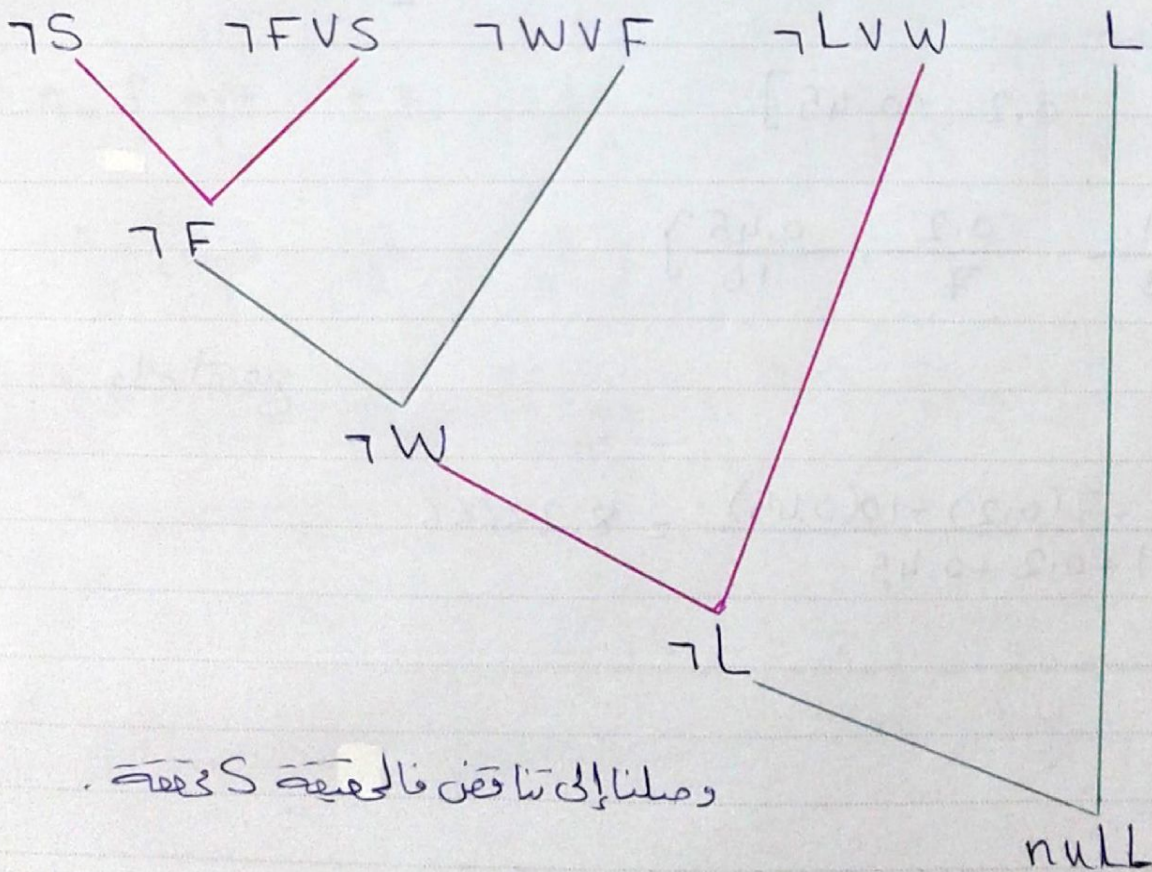 ¬S ¬FVS ¬WVF ¬LVW L
¬F
¬W
¬L
وصلنا إلى تناقض فالحقيقة S محققة .
null